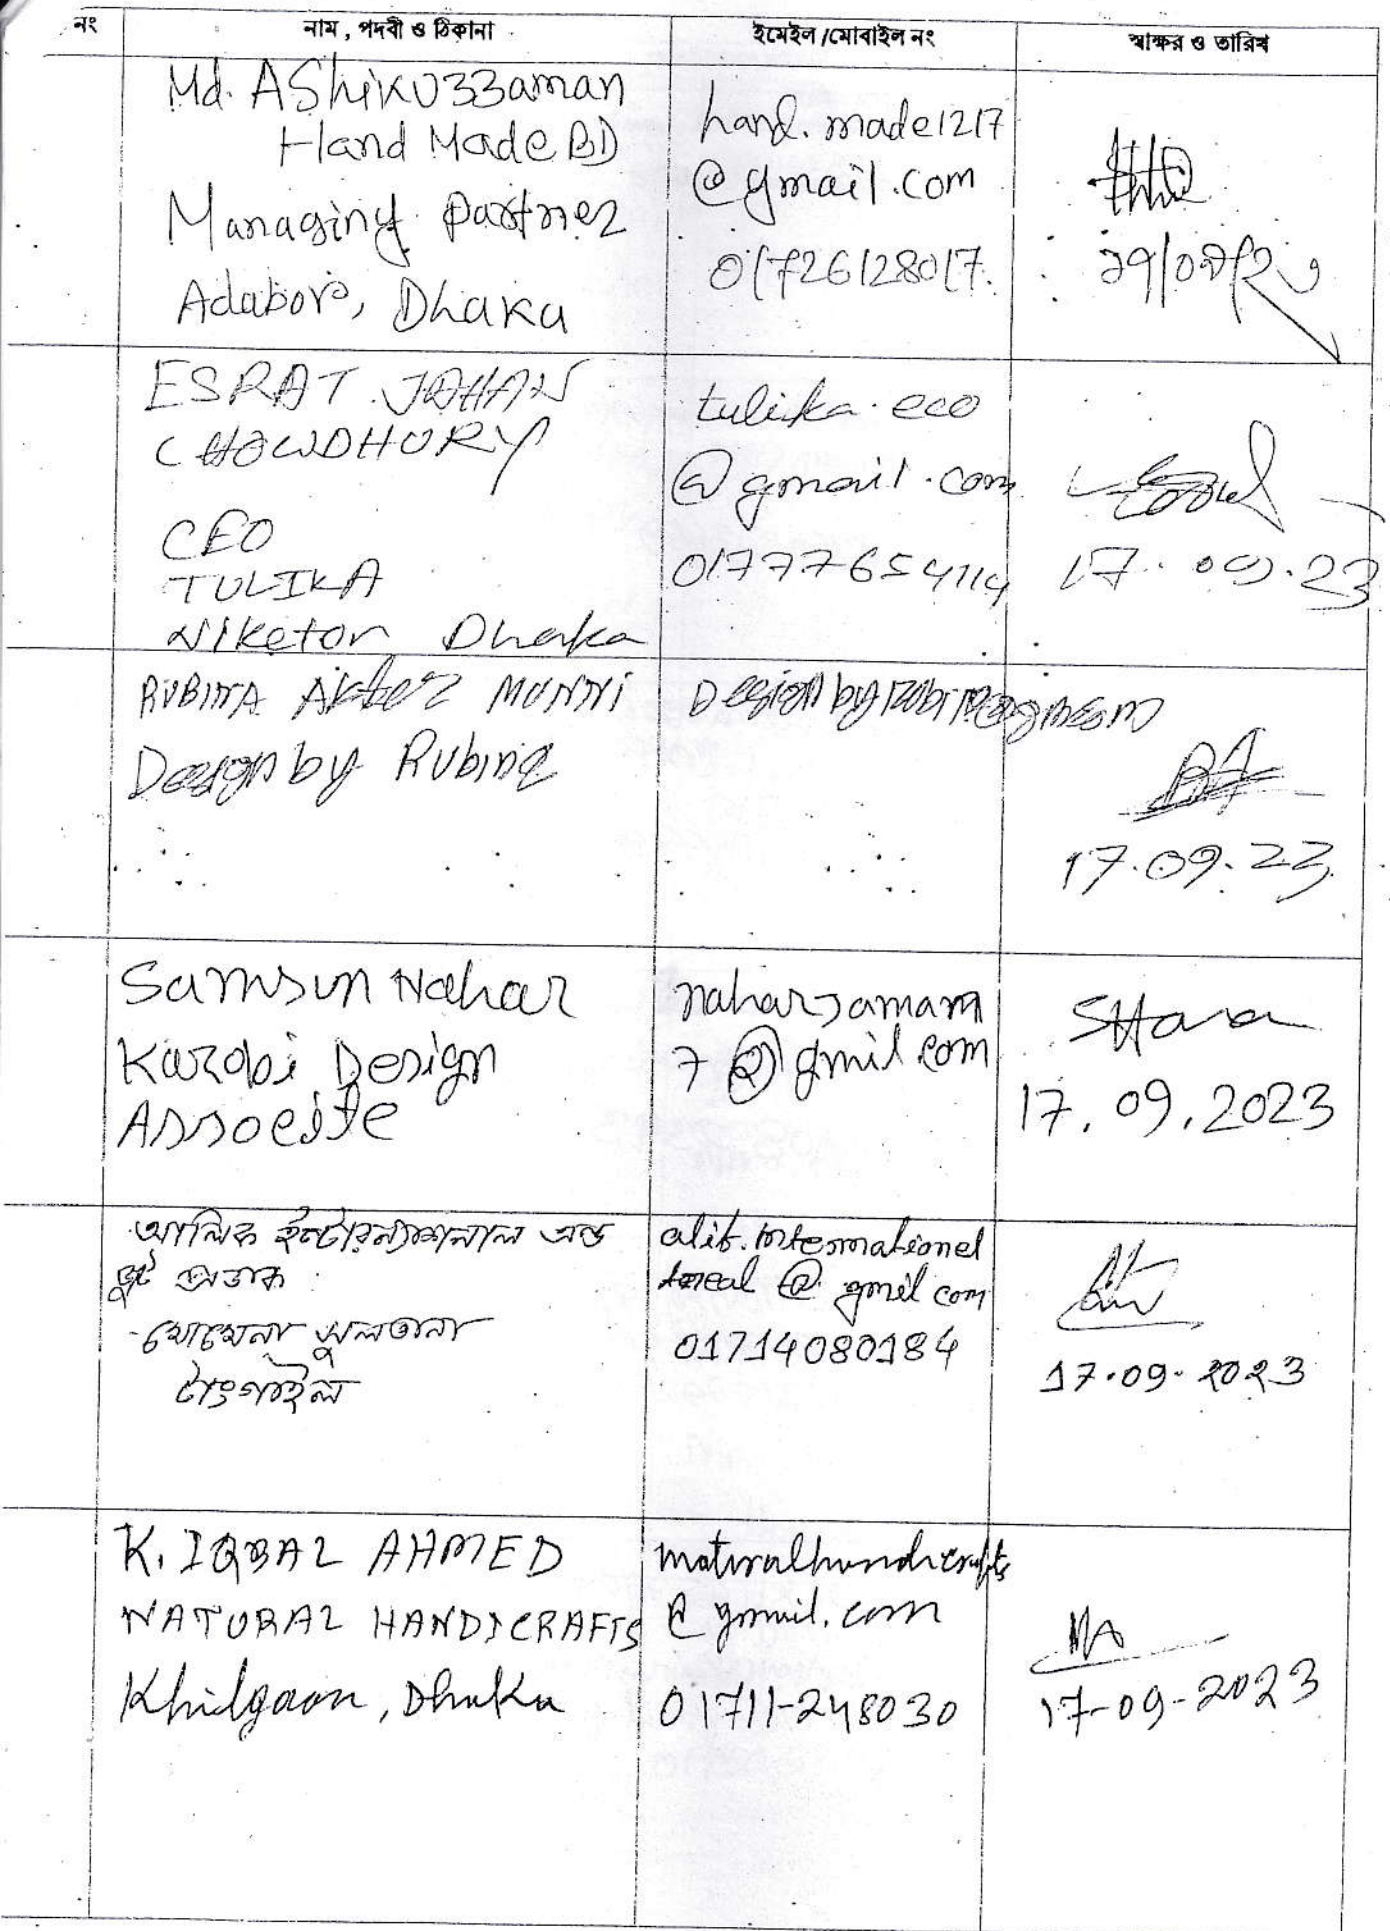 নং নাম , পদবী ও ঠিকানা ইমেইল /মোবাইল নং স্বাক্ষর ও তারিখ
Md. AShikuzzaman
Hand Made BD
Managing Partner
Adabor, Dhaka
hand.made1217
@gmail.com
01726128017.
১৭/০৯/২৩
ESRAT JAHAN
CHOWDHURY
CEO
TULIKA
Niketon Dhaka
tulika.eco
@gmail.com
01777654114
17.09.23
RUBINA Akter MUNNi
Design by Rubina
17.09.23
Samsun Nahar
Karabi Design
Associte
naharsamam
7@gmil com
17.09.2023
আলিফ ইন্টারন্যাশনাল এন্ড
মোমেনা সুলতানা
টাংগাইল
alif.international
@ gmil com
01714080184
17.09.2023
K. IQBAL AHMED
NATURAL HANDICRAFTS
Khilgaon, Dhaka
naturalhandicrafts
@ gmail.com
01711-248030
17-09-2023